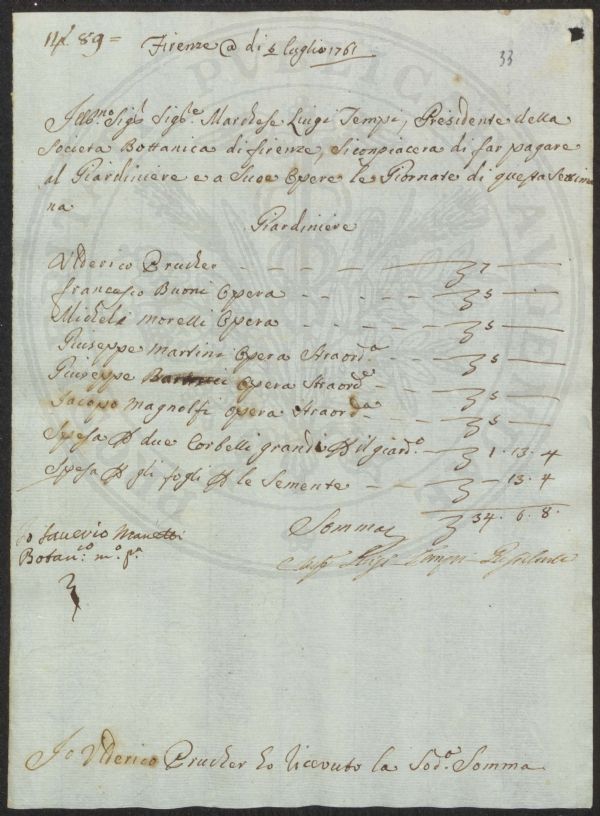 89 =
Firenze @ di luglio 1761
33
Ill.mo Sig.e Sig.e Marchese Luigi Tempi, Presidente della
Societa Bottanica di firenze, Siconpiacera di far pagare
al Giardiniere e a Sue Opere le Giornate di questa Settima
na
Giardiniere
Ulderico Prucher 7
Francesco Buoni Opera 5
Michele Morelli Opera 5
Giuseppe Martini Opera Straord.a 5
Giuseppe Opera Straord.a 5
Jacopo Magnolfi Opera Straord.a 5
Spesa P due Corbelli grandi P il giard.o 1. 13. 4
Spesa P gli fogli P le Semente - 13. 4
Somma 34. 6. 8.
Io Saverio Manetti
Botan.co m.o p.a
Luigi Tempi Presidente
Io Ulderico Prucher ho ricevuto la Sod.a Somma